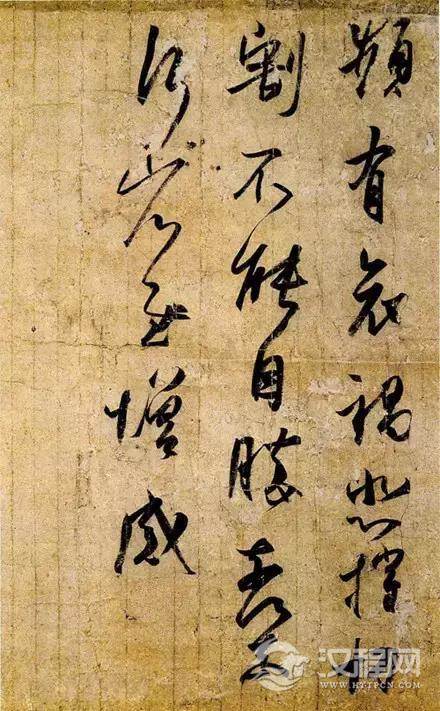 頻有哀禍悲摧切
割不能自勝奈
何省慰增感
汉程网
WWW.HTTPCN.COM